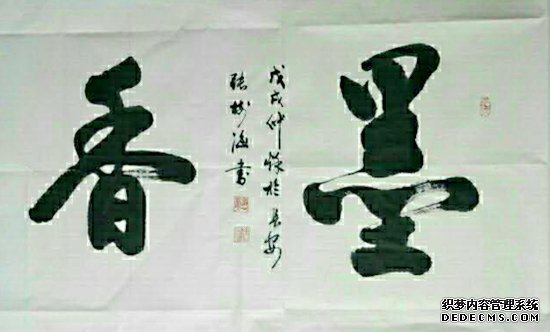 墨香
戊戌仲秋於長安
張樹海書
织梦内容管理系统
DEDECMS.COM